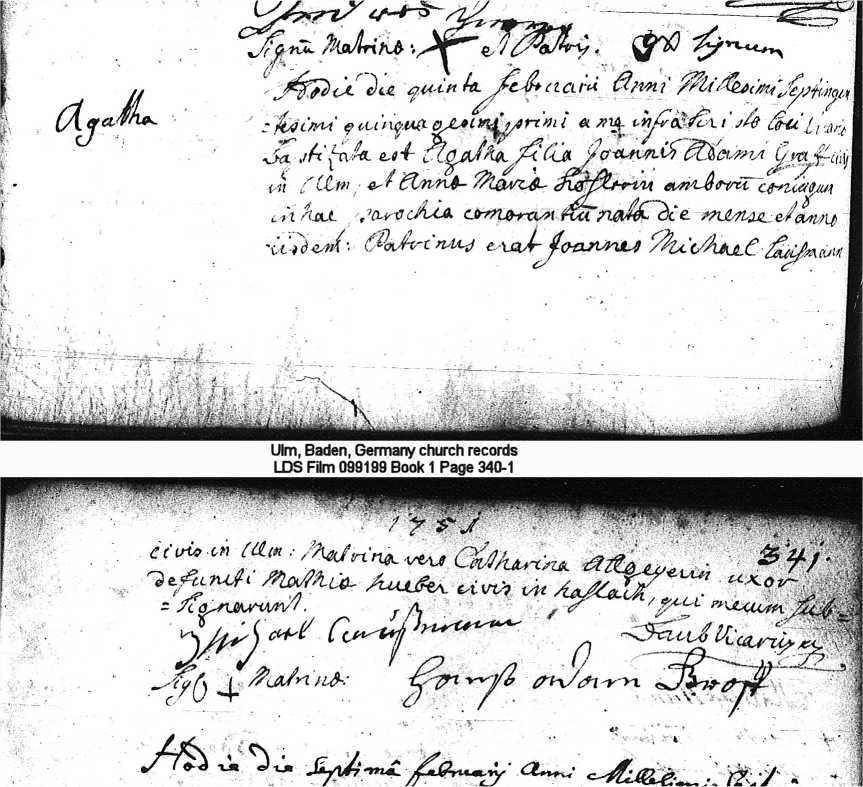 Signũ Matrinæ: X et Patris. signum
Agatha
Hodie die quinta februarii Anni Millesimi Septingen
=tesimi quinquagesimi primi a me infra scripto
baptizata est Agatha filia Joannis Adami Graff civis
in Ulm, et Annæ Mariæ amborũ coniugum
in hac parochia comorantiũ nata die mense et anno
iisdem: Patrinus erat Joannes Michael Lausmann
Ulm, Baden, Germany church records
LDS Film 099199 Book 1 Page 340-1
1751
341.
civis in Ulm: Matrina vero Catharina Allgeyerin uxor
defuncti Mathiæ hueber civis in haslach, qui mecum sub=
=signarunt.
Daub Vicarius
Sig Matrinæ: Hanß adam
Hodie die septimâ februarij Anni